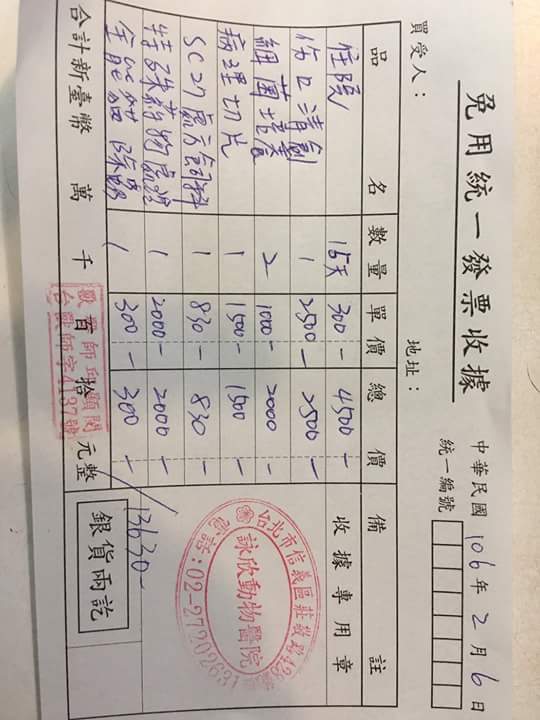 免用統一發票收據
中華民國 106 年 2 月 6 日
統一編號
買受人：
地址：
品名 數量 單價 總價 備註
住院 15天 300- 4500-
傷口清創 1 2500- 2500-
細菌培養 2 1000- 2000-
病理切片 1 1500- 1500
SC27處方飼料 1 830- 830-
特殊藥物處理 1 2000- 2000-
1 300- 300-
合計新臺幣 萬 千 百 拾 元整
13630-
收據專用章
台北市信義區莊敬路
詠欣動物醫院
電話：02-27202631
獸醫師
台獸師字4137號
銀貨兩訖